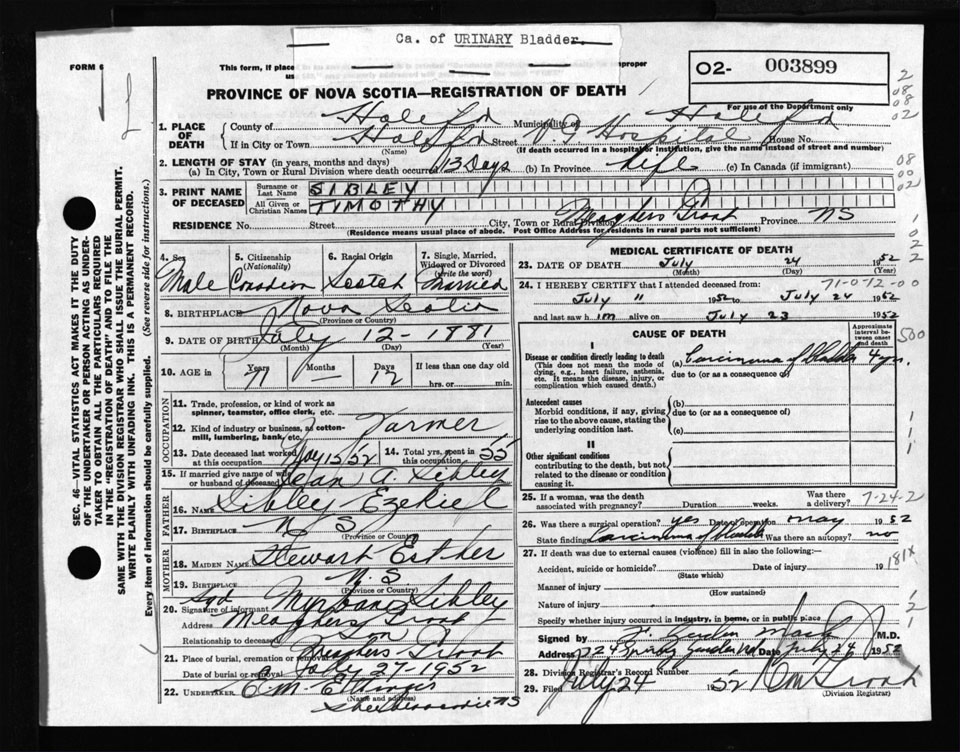 Ca. of URINARY Bladder.
FORM 6
This form, if place
us
improper
O2- 003899
PROVINCE OF NOVA SCOTIA—REGISTRATION OF DEATH
For use of the Department only
1. PLACE OF DEATH
County of Halifax Municipality of Halifax
If in City or Town Halifax Street V.G. Hospital House No.
(Name) (If death occurred in a hospital or institution, give the name instead of street and number)
2. LENGTH OF STAY (in years, months and days)
(a) In City, Town or Rural Division where death occurred 13 Days (b) In Province Life (c) In Canada (if immigrant)
3. PRINT NAME OF DECEASED
Surname or Last Name SIBLEY
All Given or Christian Names TIMOTHY
RESIDENCE No. Street City, Town or Rural Division Meaghers Grant Province NS
(Residence means usual place of abode. Post Office Address for residents in rural parts not sufficient)
4. Sex Male
5. Citizenship (Nationality) Canadian
6. Racial Origin Scotch
7. Single, Married, Widowed or Divorced (write the word) Married
8. BIRTHPLACE Nova Scotia
(Province or Country)
9. DATE OF BIRTH July 12 - 1881
(Month) (Day) (Year)
10. AGE in Years 71 Months — Days 12 If less than one day old
hrs. or min.
OCCUPATION
11. Trade, profession, or kind of work as spinner, teamster, office clerk, etc.
12. Kind of industry or business, as cotton-mill, lumbering, bank, etc. Farmer
13. Date deceased last worked at this occupation May 15/52
14. Total yrs. spent in this occupation 55
15. If married give name of wife or husband of deceased Jean A Sibley
FATHER
16. Name Sibley Ezekiel
17. Birthplace N.S.
(Province or Country)
MOTHER
18. Maiden Name Stewart Esther
19. Birthplace N.S.
(Province or Country)
20. Signature of informant Sgd Sibley
Address Meaghers Grant
Relationship to deceased Son
21. Place of burial, cremation or removal Meaghers Grant
Date of burial or removal July 27-1952
22. UNDERTAKER E.M. Ettinger
(Name and address)
Shubenacadie NS
MEDICAL CERTIFICATE OF DEATH
23. DATE OF DEATH July 24 1952
(Month) (Day) (Year)
24. I HEREBY CERTIFY that I attended deceased from: 71-0-12-00
July 11 1952 to July 24 1952
and last saw him alive on July 23 1952
CAUSE OF DEATH
Approximate interval between onset and death
I
Disease or condition directly leading to death
(This does not mean the mode of dying, e.g., heart failure, asthenia, etc. It means the disease, injury, or complication which caused death.)
(a) Carcinoma of bladder 4 yrs.
due to (or as a consequence of)
Antecedent causes
Morbid conditions, if any, giving rise to the above cause, stating the underlying condition last.
(b)
due to (or as a consequence of)
(c)
II
Other significant conditions
contributing to the death, but not related to the disease or condition causing it.
25. If a woman, was the death associated with pregnancy? Duration weeks. Was there a delivery? 7-24-2
26. Was there a surgical operation? yes Date of operation may 1952
State findings Carcinoma of bladder Was there an autopsy? no
27. If death was due to external causes (violence) fill in also the following:—
Accident, suicide or homicide? Date of injury 19 181X
(State which)
Manner of injury
(How sustained)
Nature of injury
Specify whether injury occurred in industry, in home, or in public place
Signed by Gordon Mack M.D.
Address 124 Spring Garden Rd Date July 24 1952
28. Division Registrar's Record Number
29. Filed July 24 1952
(Division Registrar)
SEC. 46—VITAL STATISTICS ACT MAKES IT THE DUTY
OF THE UNDERTAKER OR PERSON ACTING AS UNDER-
TAKER TO OBTAIN ALL THE PARTICULARS REQUIRED
IN THE "REGISTRATION OF DEATH" AND TO FILE THE
SAME WITH THE DIVISION REGISTRAR WHO SHALL ISSUE THE BURIAL PERMIT.
WRITE PLAINLY WITH UNFADING INK. THIS IS A PERMANENT RECORD.
Every item of information should be carefully supplied. (See reverse side for instructions.)
2
08
08
02
08
00
02
1
02
2
500
1
1
1
1
2